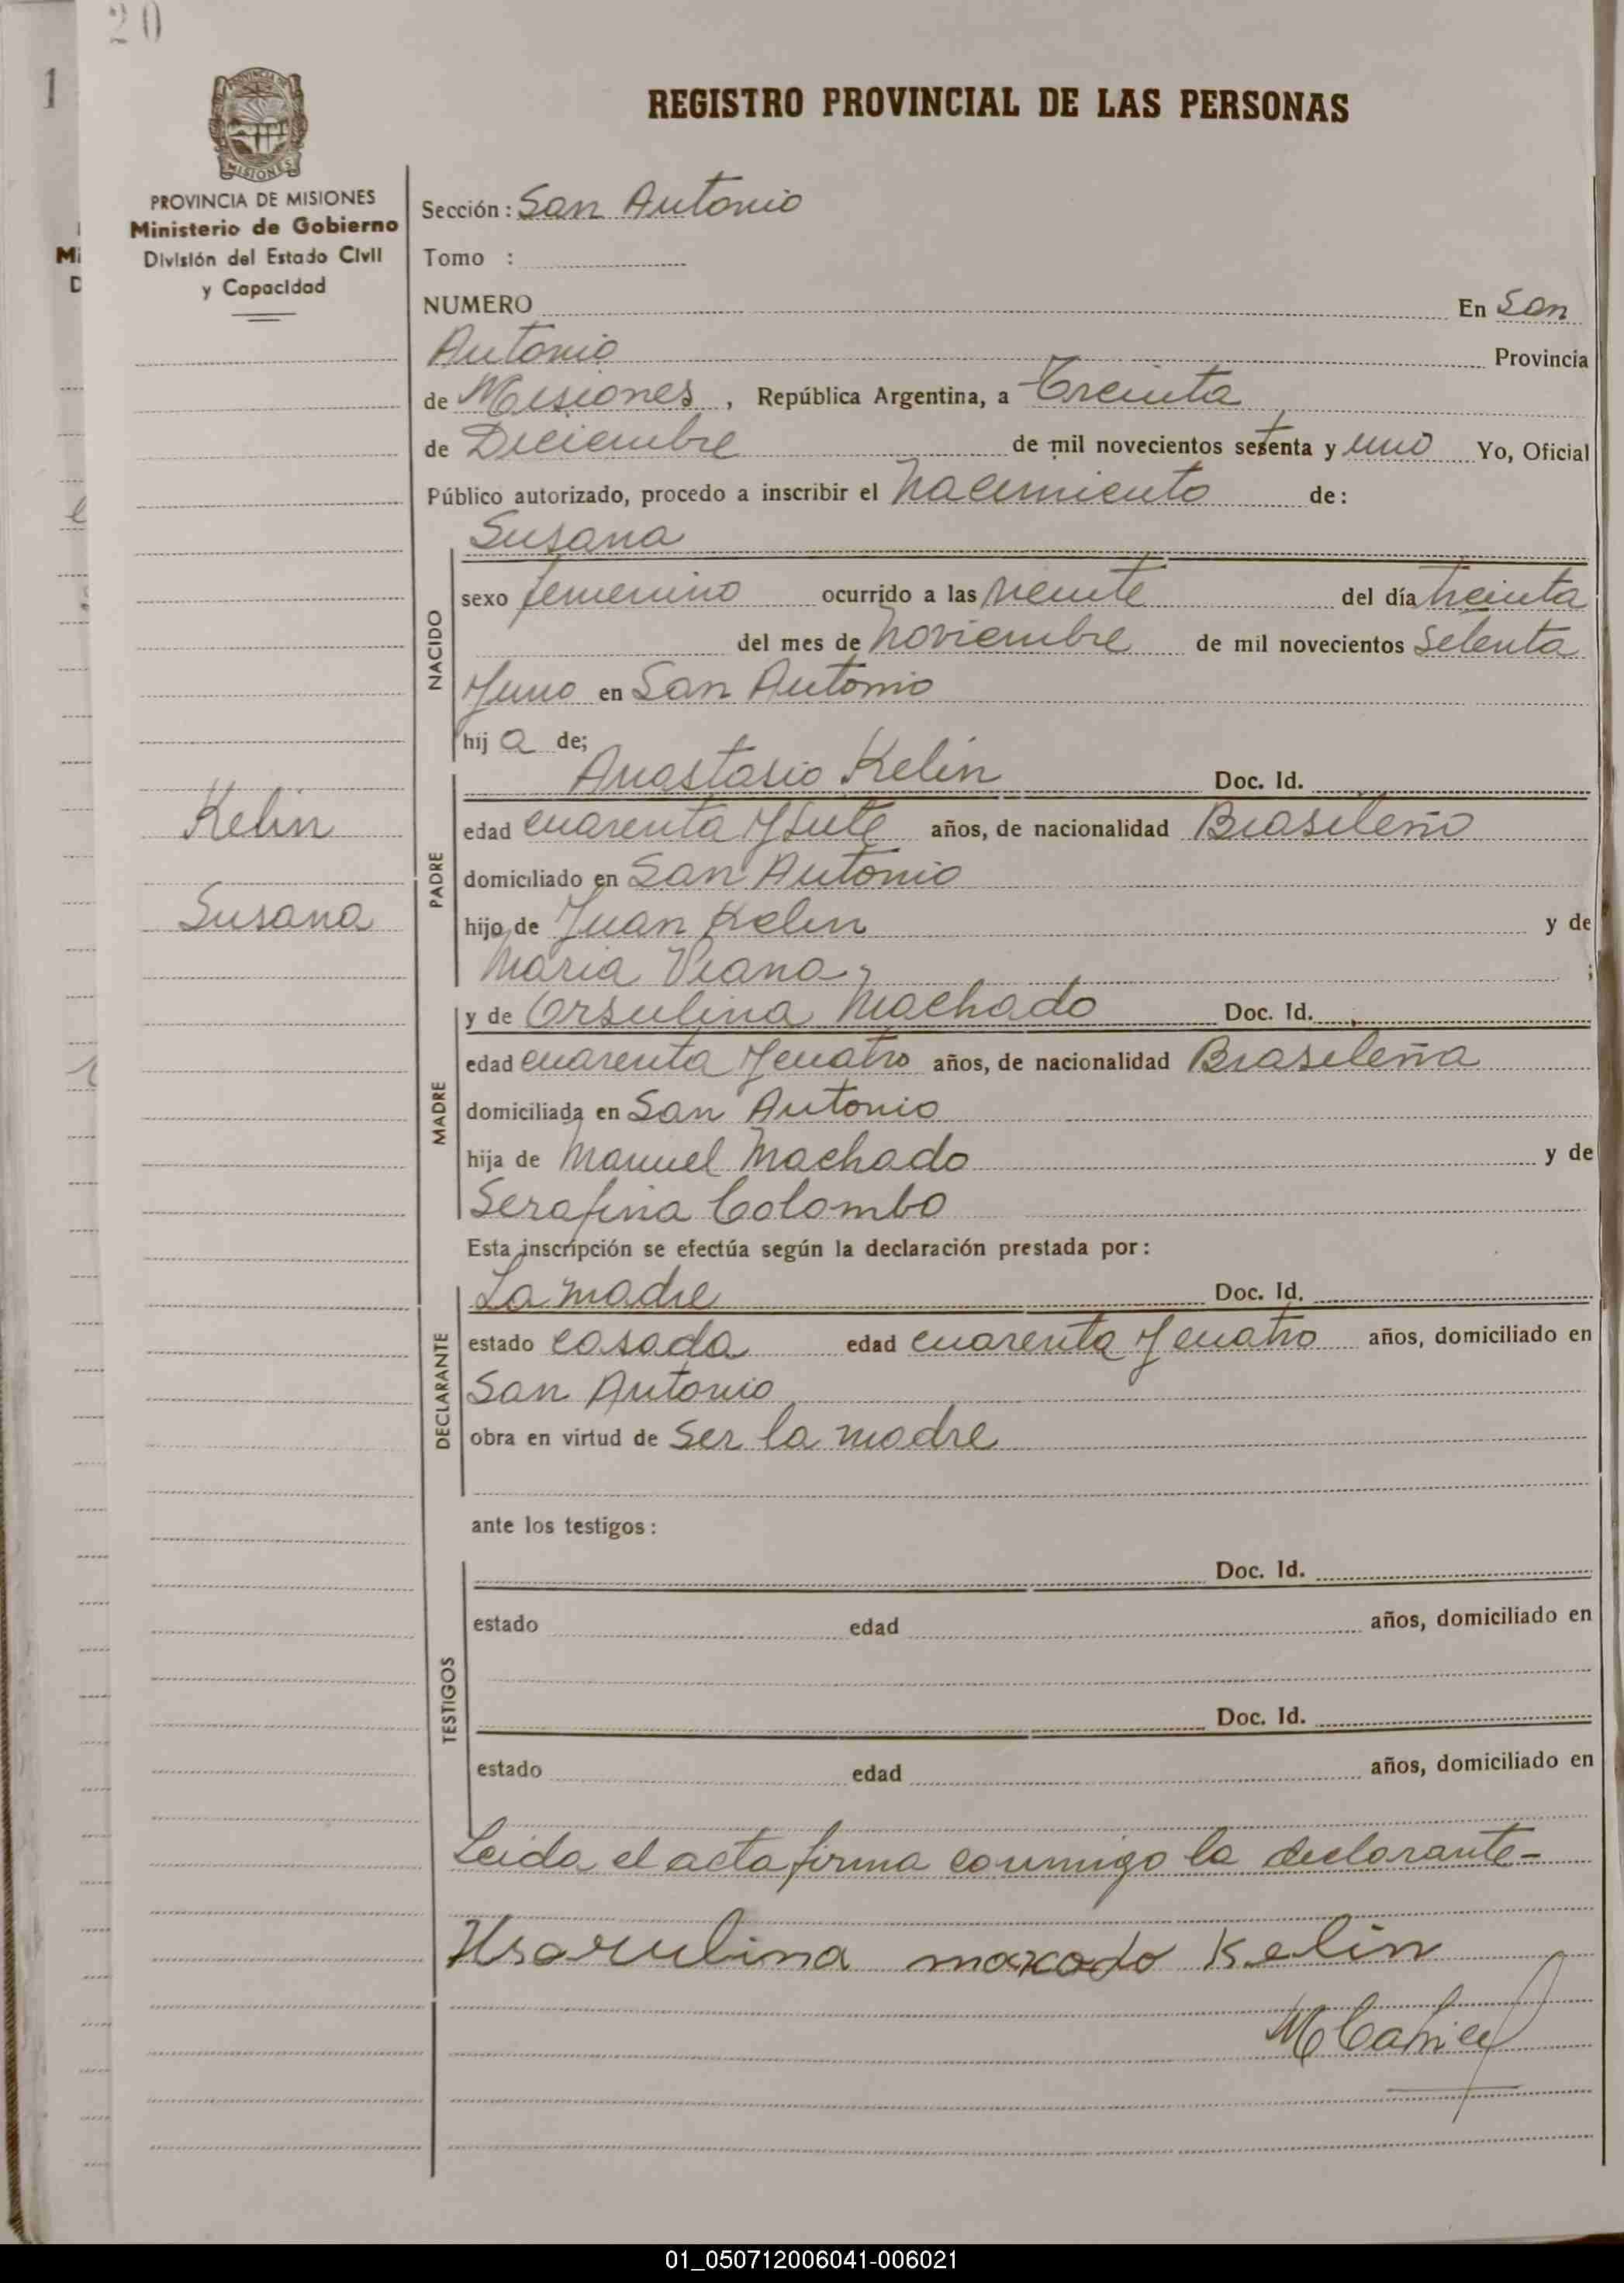 20
1
REGISTRO PROVINCIAL DE LAS PERSONAS
PROVINCIA DE MISIONES
Ministerio de Gobierno
División del Estado Civil
y Capacidad
Sección: San Antonio
Tomo :
NUMERO En San
Antonio Provincia
de Misiones, República Argentina, a Treinta
de Diciembre de mil novecientos setenta y uno Yo, Oficial
Público autorizado, procedo a inscribir el nacimiento de:
Susana
NACIDO
sexo femenino ocurrido a las veinte del día treinta
del mes de noviembre de mil novecientos setenta
y uno en San Antonio
hij a de;
Anastasio Kelin Doc. Id.
Kelin
Susana
PADRE
edad cuarenta y siete años, de nacionalidad Brasileño
domiciliado en San Antonio
hijo de Juan Kelin y de
Maria Viana ;
y de Orsulina Machado Doc. Id.
MADRE
edad cuarenta y cuatro años, de nacionalidad Brasileña
domiciliada en San Antonio
hija de Manuel Machado y de
Serafina Colombo
Esta inscripción se efectúa según la declaración prestada por:
La madre Doc. Id.
DECLARANTE
estado casada edad cuarenta y cuatro años, domiciliado en
San Antonio
obra en virtud de ser la madre
ante los testigos:
Doc. Id.
TESTIGOS
estado edad años, domiciliado en
Doc. Id.
estado edad años, domiciliado en
Leida el acta firma conmigo la declarante-
Usorulina maxado Kelin
01_050712006041-006021